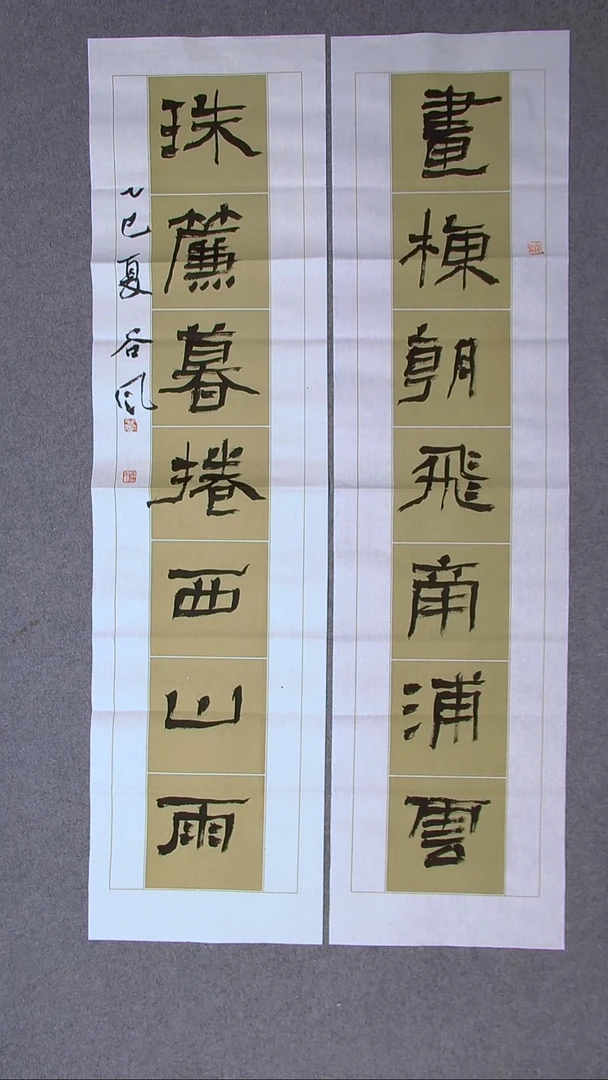 畫棟朝飛南浦雲
珠簾暮捲西山雨
乙巳夏 谷風